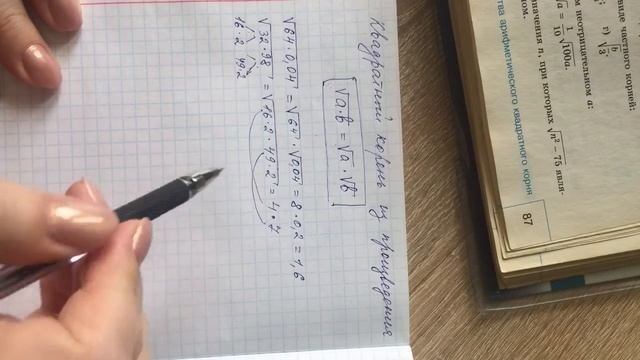 Квадратный корень из произведения
√a·b = √a · √b
√64·0,04 = √64 · √0,04 = 8 · 0,2 = 1,6
√32·98 = √16·2·49·2 = 4·7
16·2 49·2
виде частного корней:
г) √b/3
м неотрицательном a:
√a = 1/10 √100a.
значения n, при которых √n² − 75 явля-
ства арифметического квадратного корня 87